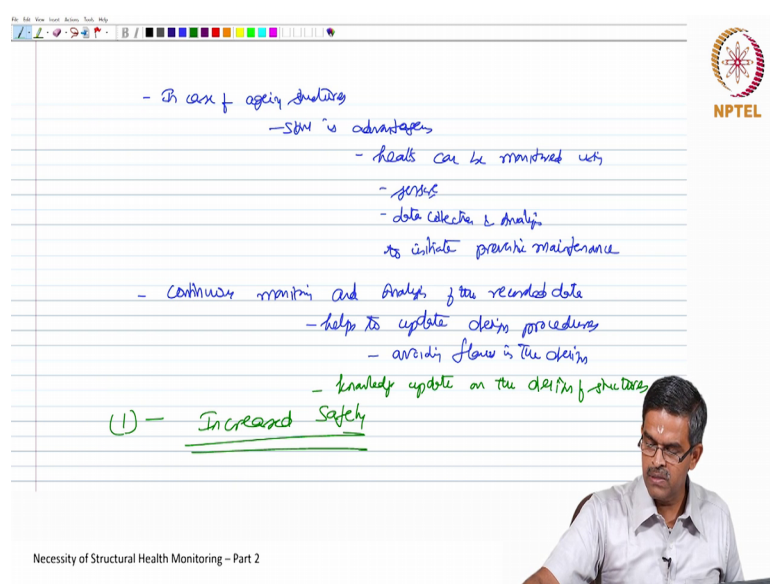 File Edit View Insert Actions Tools Help
B I
NPTEL
- In case of ageing structures
- SHM is advantages
- health can be monitored using
- sensors
- data collection & Analysis
to initiate preventive maintenance
- Continuous monitoring and Analysis of the recorded data
- helps to update design procedures
- avoiding flaws in the design
- knowledge update on the design of structures
(1) - Increased Safety
Necessity of Structural Health Monitoring – Part 2